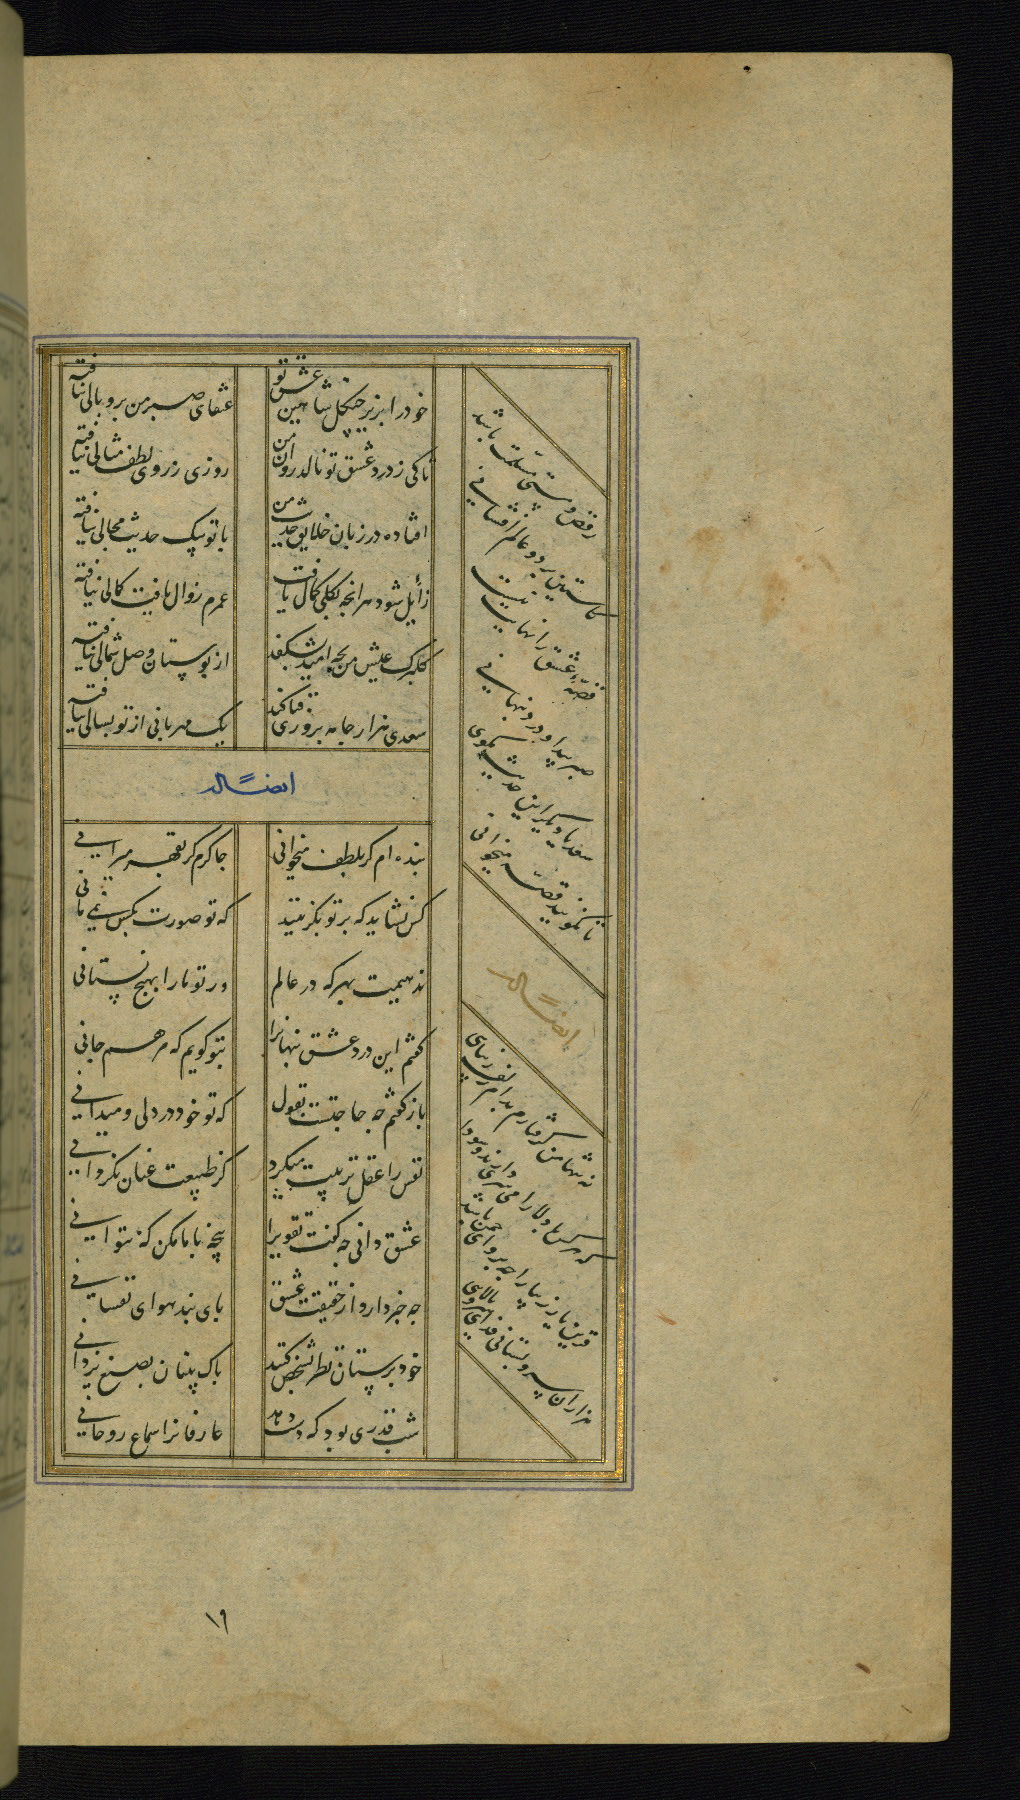 خود را بزیر چنگل شاهین عشق تو
عنقای صبر من پر و بالی نیافته
تا کی ز درد عشق تو نالد روان من
روزی ز روی لطف مثالی نیافته
افتاده در زبان خلایق حدیث من
با تو بیک حدیث مجالی نیافته
زایل شود هر انچه بکلی کمال یافت
عمرم زوال یافت کمالی نیافته
گلبرک عیش من بچه امید بشکفد
از بوستان وصل شمالی نیافته
سعدی هزار جامه بروزی قبا کند
یک مهربانی از تو بسالی نیافته
ایضاً له
بنده ام کر بلطف میخوانی
حاکرم کر بقهر میرانی
کس نشاید که بر تو بکزینند
که تو صورت بکس نمی مانی
ندهیمت بهر که در عالم
ور تو ما را بهیچ نستانی
کفتم این درد عشق پنهانرا
بتو کویم که مرهم جانی
باز کفتم چه حاجتست بقول
که تو خود در دلی و میدانی
نفس را عقل تربیت میکرد
کز طبیعت عنان بکردانی
عشق دانی چه کفت تقوی را
پنجه با ما مکن که نتوانی
چه خبر دارد از حقیقت عشق
پای بند هوای نفسانی
خودپرستان نظر بشخص کنند
پاک بینان بصنع یزدانی
شب قدری بود که دست دهد
عارفانرا سماع روحانی
رقص وقتی مسلمت باشد
کاستین بر دو عالم افشانی
قصه عشق را نهایت نیست
صبر پیدا و درد پنهانی
سعدیا دیکر این حدیث مکوی
تا نکویند قصه میخوانی
ایضاً له
نه تنها من کرفتارم بدام زلف زیبایی
که هر کس با دلارامی سری دارند و سودایی
قرین یار زیبا را چه پروای چمن باشد
هزاران سرو بستانی فدای سرو بالایی
١٩